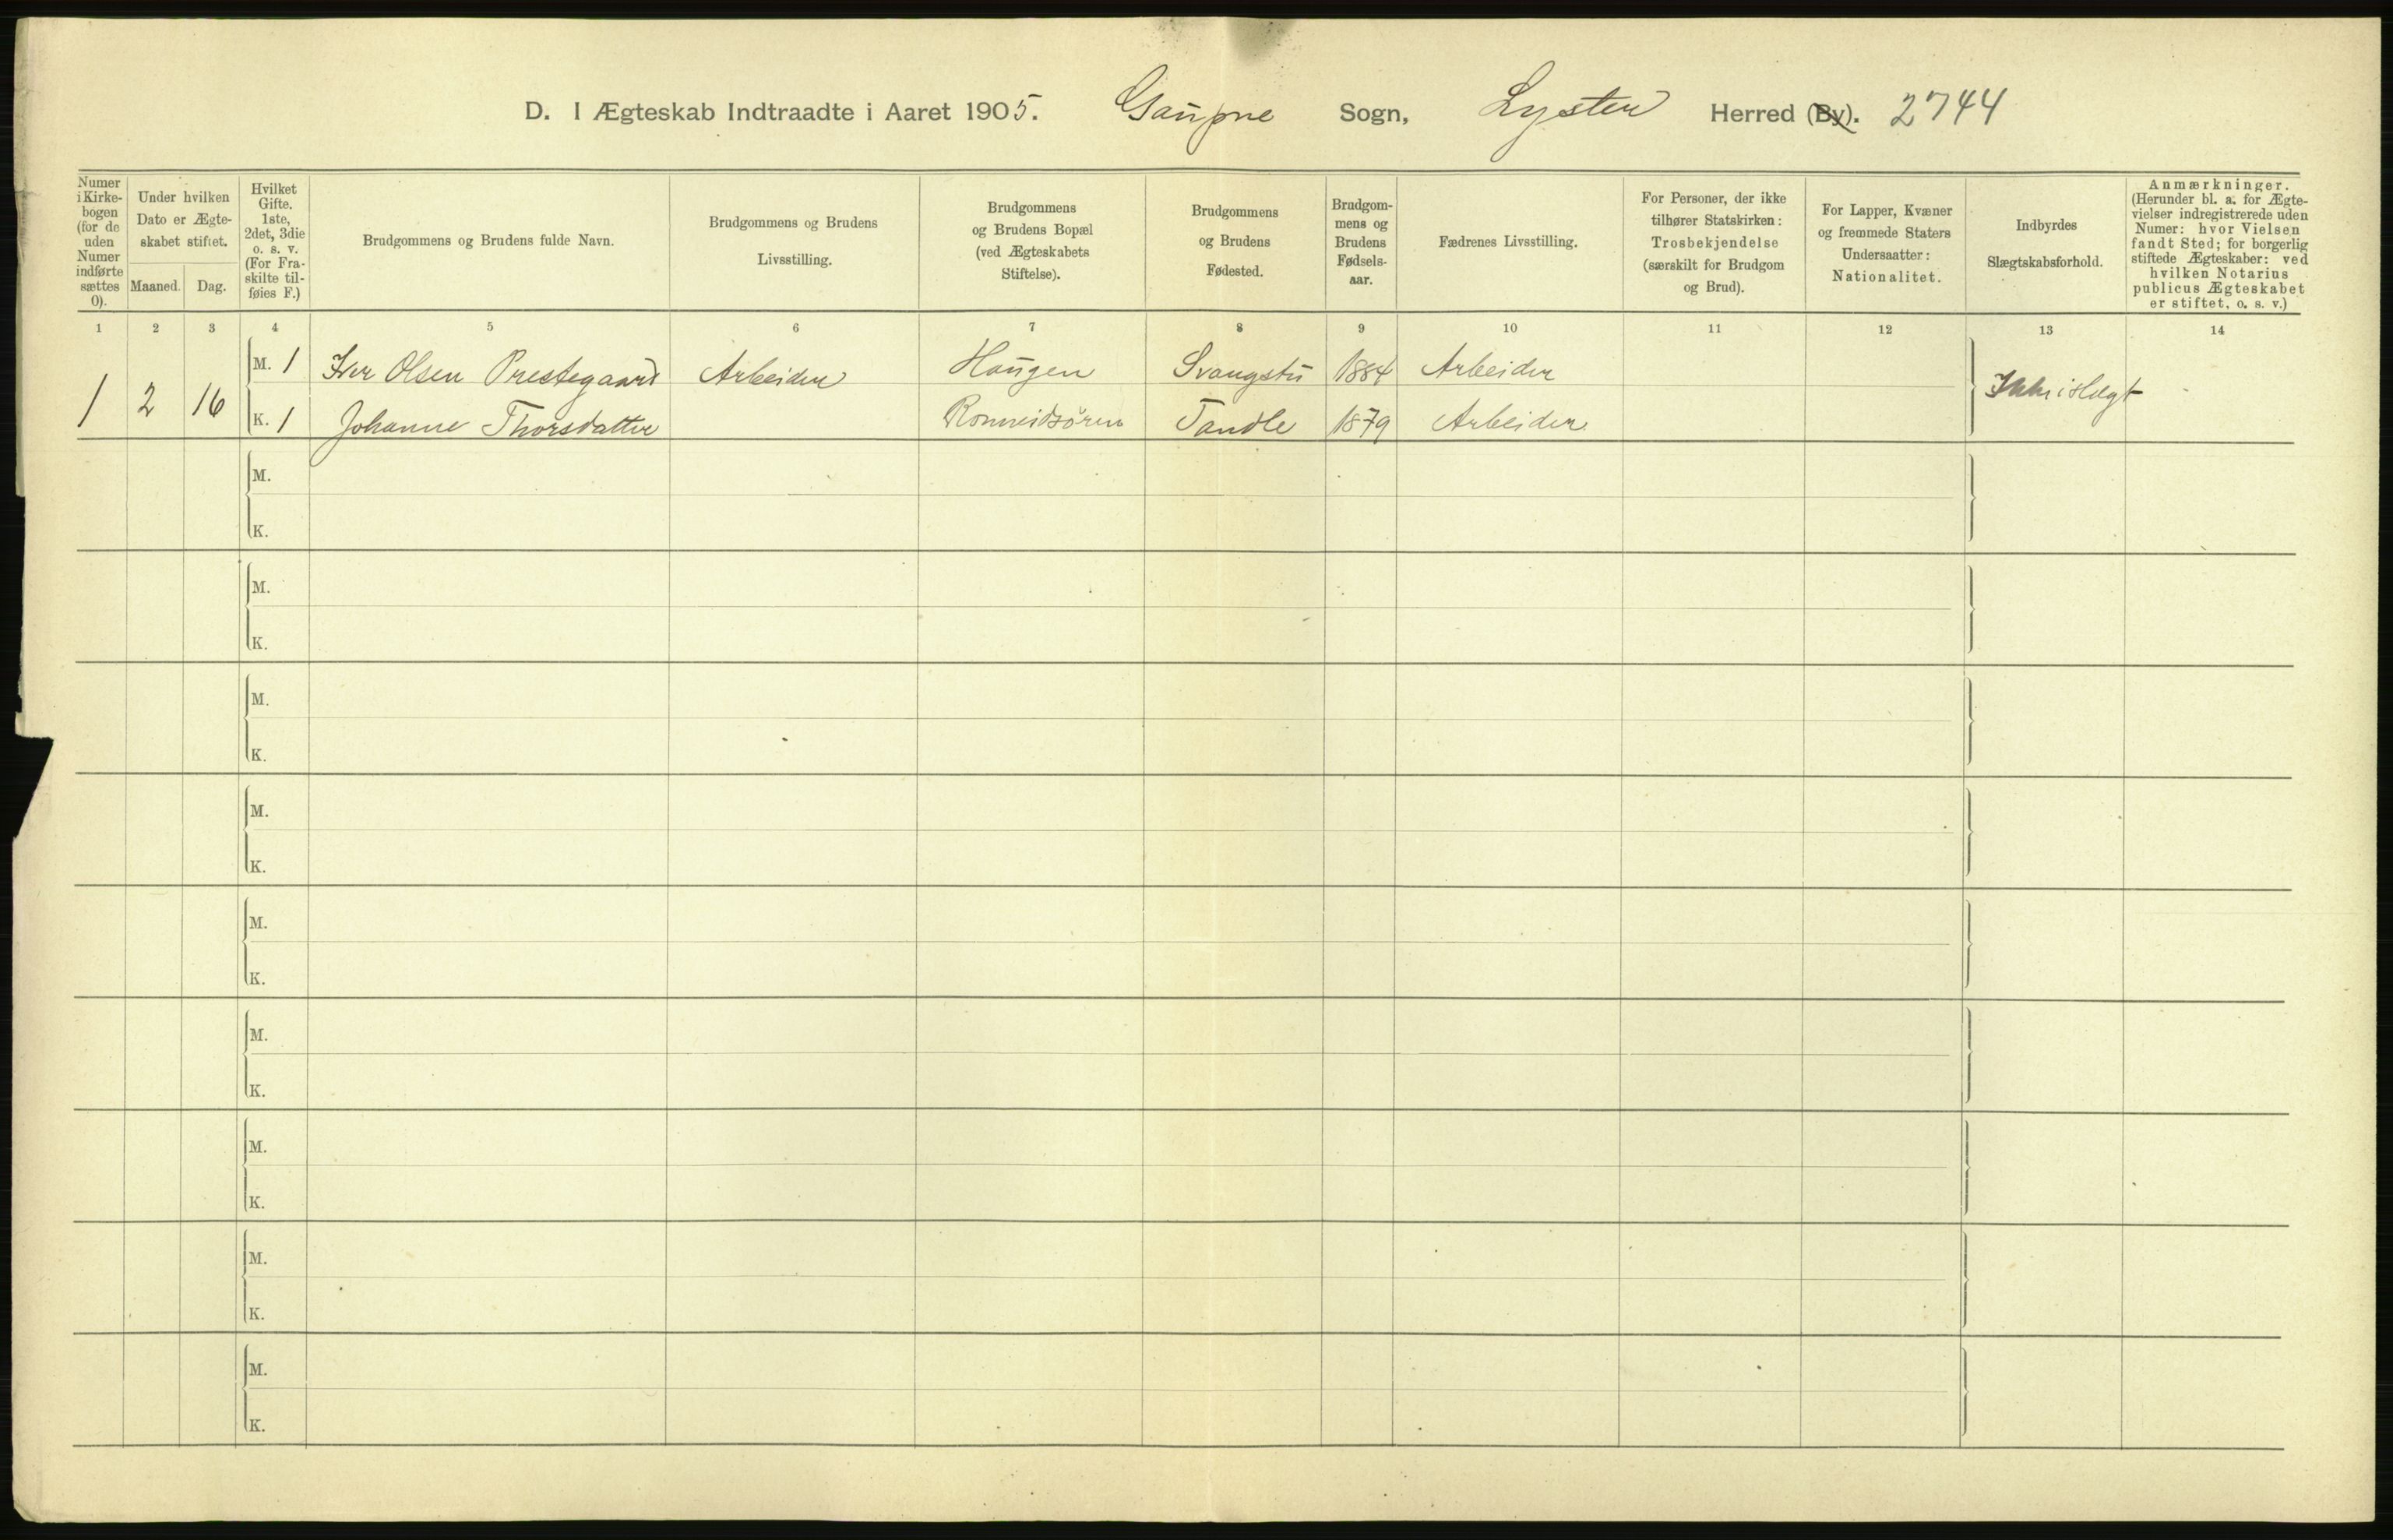 D. I Ægteskab Indtraadte i Aaret 1905. Gaupne Sogn, Lyster Herred (By). 2744
Numer i Kirkebogen (for de uden Numer indførte sættes 0).
Under hvilken Dato er Ægteskabet stiftet.
Maaned. Dag.
Hvilket Gifte. 1ste, 2det, 3die o. s. v. (For Fraskilte tilføies F.)
Brudgommens og Brudens fulde Navn.
Brudgommens og Brudens Livsstilling.
Brudgommens og Brudens Bopæl (ved Ægteskabets Stiftelse).
Brudgommens og Brudens Fødested.
Brudgommens og Brudens Fødselsaar.
Fædrenes Livsstilling.
For Personer, der ikke tilhører Statskirken: Trosbekjendelse (særskilt for Brudgom og Brud).
For Lapper, Kvæner og fremmede Staters Undersaatter: Nationalitet.
Indbyrdes Slægtskabsforhold.
Anmærkninger. (Herunder bl. a. for Ægtevielser indregistrerede uden Numer: hvor Vielsen fandt Sted; for borgerlig stiftede Ægteskaber: ved hvilken Notarius publicus Ægteskabet er stiftet, o. s. v.)
1 2 3 4 5 6 7 8 9 10 11 12 13 14
1 2 16 M. 1 Iver Olsen Prestegaard Arbeider Haugen 1884 Arbeider
K. 1 Johanne Thorsdatter Tandle 1879 Arbeider
M.
K.
M.
K.
M.
K.
M.
K.
M.
K.
M.
K.
M.
K.
M.
K.
M.
K.